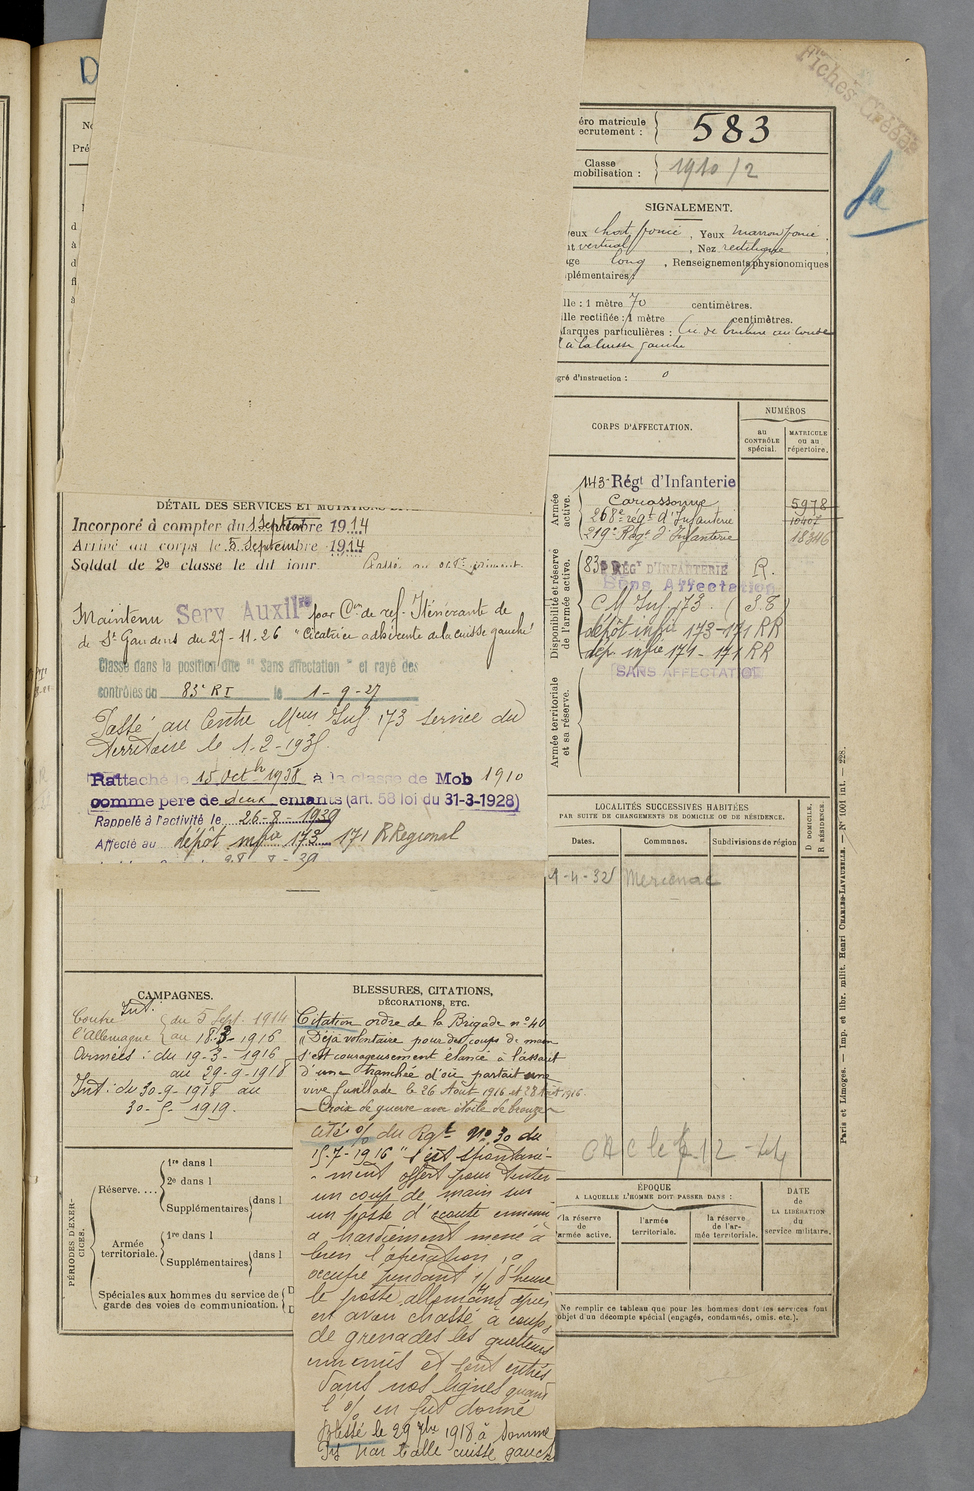 D
Fiches Créées
fa
No
Pré
éro matricule
ecrutement :
583
Classe
mobilisation :
1910/2
SIGNALEMENT.
eux chat foncé, Yeux marron foncé,
t vertical, Nez rectiligne
ge long, Renseignements physionomiques
plémentaires :
lle : 1 mètre 70 centimètres.
lle rectifiée : 1 mètre centimètres.
Marques particulières :
à la cuisse gauche
gré d'instruction : 0
CORPS D'AFFECTATION.
NUMÉROS
au CONTRÔLE spécial.
MATRICULE ou au répertoire.
Armée active.
143e Régt d'Infanterie
Carcassonne 5978
268e régt d'Infanterie 10407
219e Régt d'Infanterie 18346
Disponibilité et réserve de l'armée active.
83e RÉGT D'INFANTERIE R.
Sans Affectation
C M Inf. 173. (S.T)
dépôt infie 173-171 RR
dep infie 171-171 RR
SANS AFFECTATION
Armée territoriale et sa réserve.
DÉTAIL DES SERVICES ET MUTATIONS
Incorporé à compter du 1 Septembre 1914
Arrivé au corps le 5 Septembre 1914
Soldat de 2e classe le dit jour.
Maintenu Serv Auxil re par Con de ref. Itinérante de
de St Gaudens du 27-11-26 "Cicatrice adhérente de la cuisse gauche"
Classé dans la position dite "Sans affectation" et rayé des
contrôles du 83e RI le 1-9-27
Passé au Centre Meur Inf. 173 service du
Territoire le 1-2-193
Rattaché le 15 Octb 1938 à la classe de Mob 1910
comme père de deux enfants (art. 58 loi du 31-3-1928)
Rappelé à l'activité le 26-8-1939
Affecté au dépôt infie 173 171 R Régional
28 8-39
LOCALITÉS SUCCESSIVES HABITÉES
PAR SUITE DE CHANGEMENTS DE DOMICILE OU DE RÉSIDENCE.
Dates. Communes. Subdivisions de région
D DOMICILE,
R RÉSIDENCE.
1-4-32
CAMPAGNES.
Contre Int. du 5 Sept. 1914
l'Allemagne au 18-3-1916
Armées : du 19-3-1916
au 29-9-1918
Int : du 30-9-1918 au
30-5-1919.
BLESSURES, CITATIONS,
DÉCORATIONS, ETC.
Citation ordre de la Brigade no 40
"Déjà volontaire pour des coups de main
s'est courageusement élancé à l'assaut
d'une tranchée d'où partait une
vive fusillade le 26 Août 1916 et 28 Août 1916.
Croix de guerre avec étoile de bronze
Cité o/ du Rgt No 30 du
15-7-1916 "S'est spontané-
-ment offert pour tenter
un coup de main sur
un poste d'écoute ennemi
a hardiment mené à
bien l'opération, a
occupé pendant 1/4 d'heure
le poste allemand après
en avoir chassé à coups
de grenades les guetteurs
ennemis et sont entrés
dans nos lignes quand
l'o/ en fut donné
Blessé le 29 7bre 1918 à Somme
Py par balle cuisse gauche
CAC le 12-44
PÉRIODES D'EXERCICES.
Réserve....
1re dans l
2e dans l
Supplémentaires dans l
Armée territoriale.
1re dans l
Supplémentaires dans l
Spéciales aux hommes du service de
garde des voies de communication.
D
D
ÉPOQUE
A LAQUELLE L'HOMME DOIT PASSER DANS :
la réserve de l'armée active.
l'armée territoriale.
la réserve de l'armée territoriale.
DATE de LA LIBÉRATION du service militaire.
Ne remplir ce tableau que pour les hommes dont les services font
objet d'un décompte spécial (engagés, condamnés, omis, etc.).
Paris et Limoges. — Imp. et libr. milit. Henri CHARLES-LAVAUZELLE. — No 1001 int. — 228.